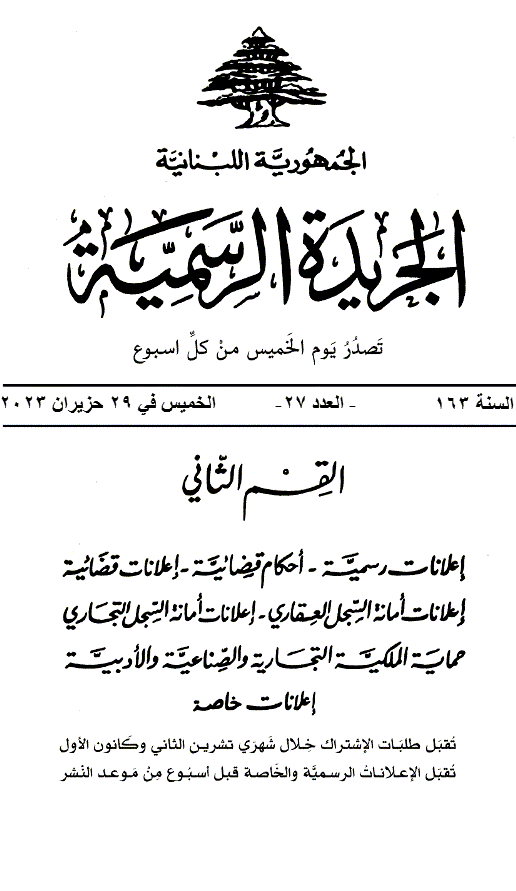 الجُمهُوريَّة اللبْنانيَّة
الجَريدَة الرَّسمِيَّة
تَصدُرُ يَوم الخَميس مِنْ كلِّ اسبوع
السنة ١٦٣ - العدد ٢٧- الخميس في ٢٩ حزيران ٢٠٢٣
القِسْم الثّاني
إعلانات رسميَّة - أحكام قضائيَّة - إعلانات قضائية
إعلانات أمانة السّجل العقاري - إعلانات أمانة السّجل التجاري
حماية الملكيَّة التجارية والصِّناعيَّة والأدبيَّة
إعلانات خاصة
تُقبَل طلبَات الإشتراك خِلال شَهرَي تشرين الثاني وكَانون الأول
تُقبَل الإعلاناتُ الرسميَّة والخَاصة قبل أسبُوع مِنْ مَوعد النَشر